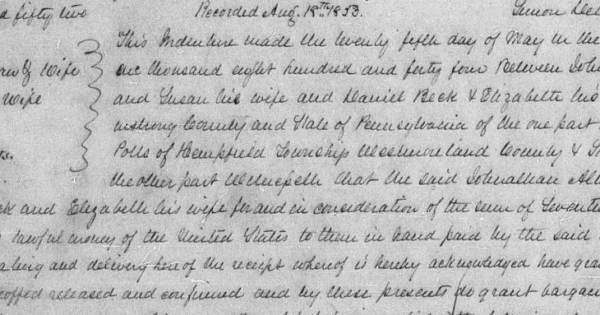 d fifty two Recorded Aug. 18th 1853. Simon
This Indenture made the twenty fifth day of May in the
& Wife one thousand eight hundred and forty four Between
Wife and Susan his wife and Daniel Beck & Elizabeth his
mstrong County and State of Pennsylvania of the one part
ts. Potts of Hempfield Township Westmoreland County & S
the other part Witnesseth that the said Johnathan
ck and Elizabeth his wife for and in consideration of the sum of
lawful money of the United States to them in hand paid by the said
aling and delivery here of the receipt whereof is hereby acknowledged have gran
eoffed released and confirmed and by these presents do grant bargai